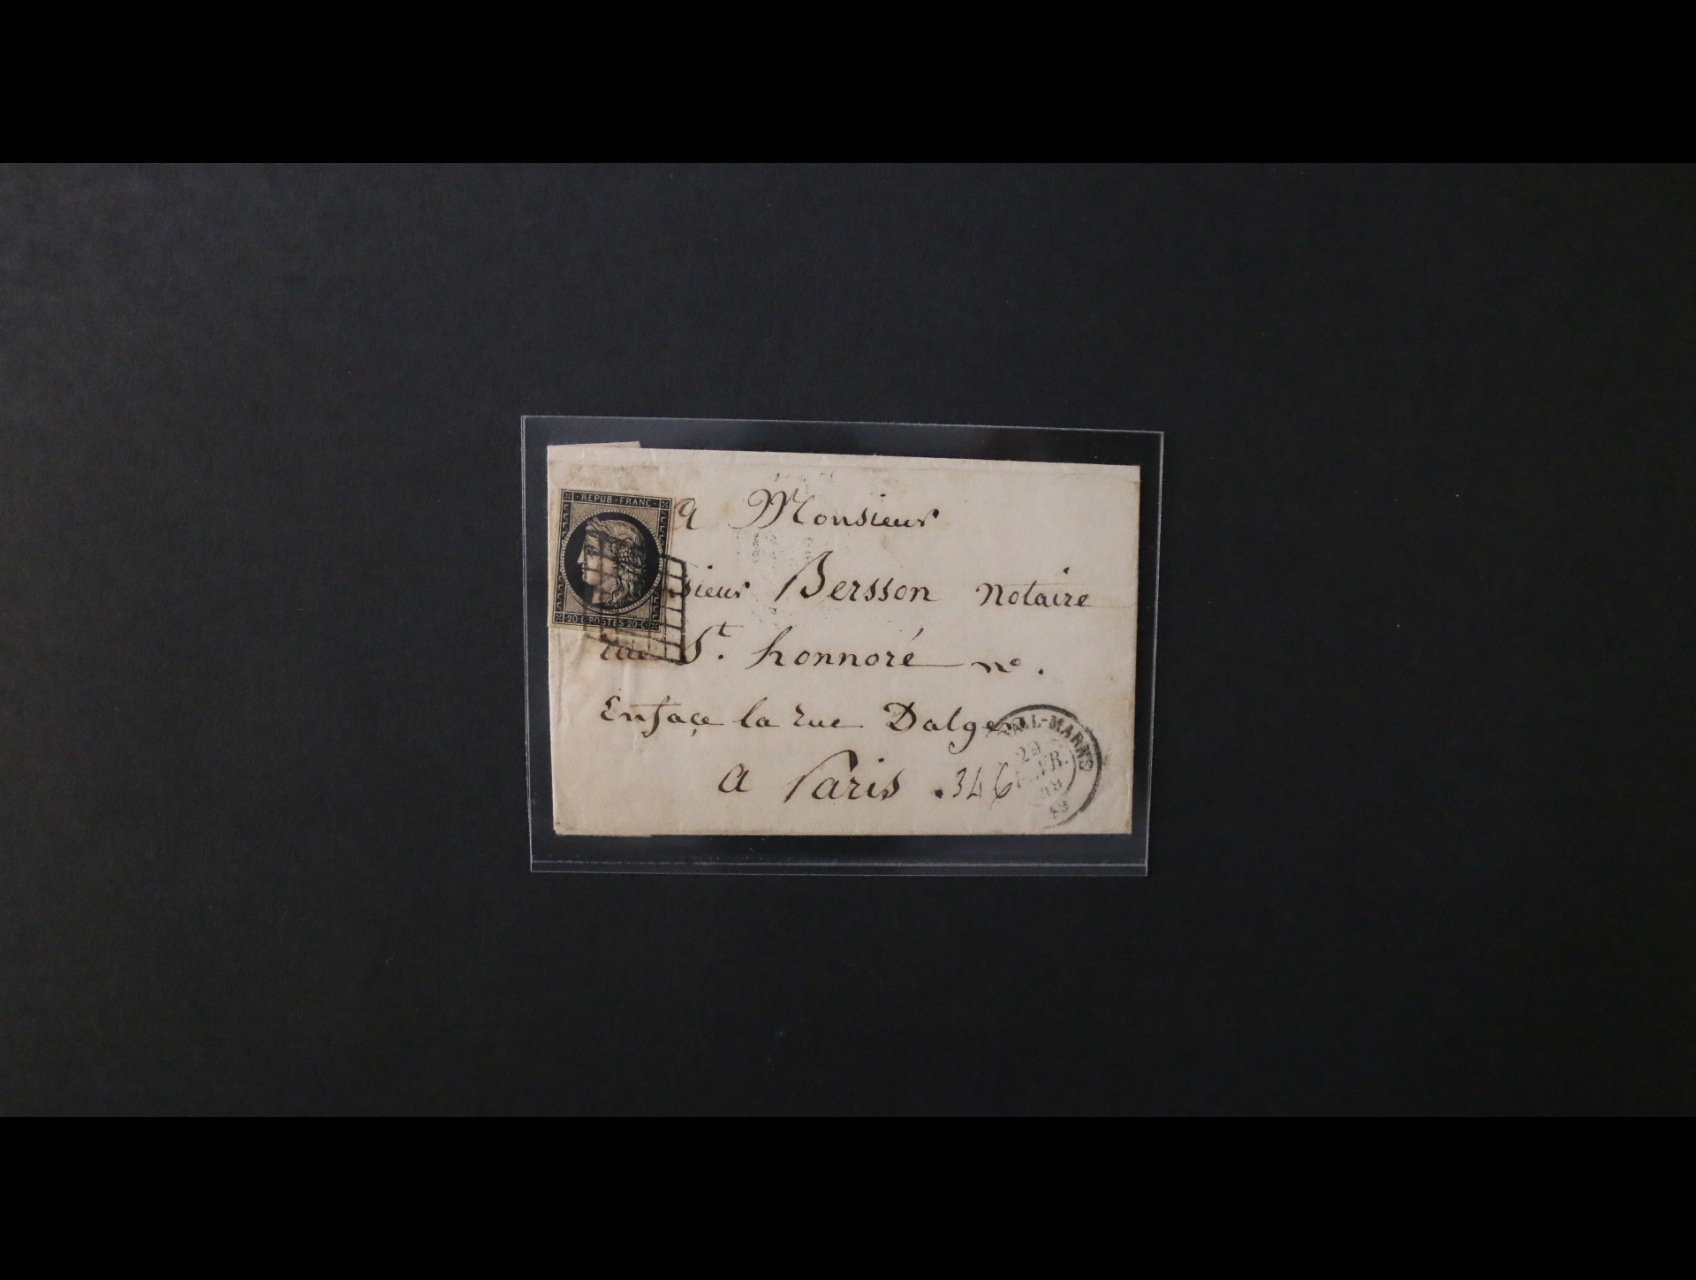 REPUB-FRANC
20 C POSTES 20 C
a Monsieur
sieur Bersson notaire
rue St. honnoré no.
Enface la rue Dalger
a Paris . 346
29